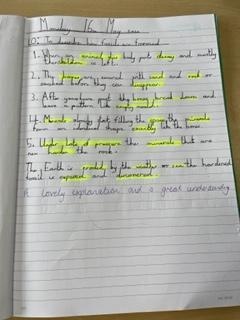 Monday 16 May
LO: To describe how fossils are formed
1. When an animal dies body put decay and mostly
the skeleton is left.
2. The bones are covered with sand and rock or
sucked before they can disappear.
3. After years have past the bones break down and
leave a pattern in empty mould.
4. Minerals slowly flat, filling the space the minerals
form an identical shape exactly like the bone.
5. Under lots of pressure the minerals that are
now harder the rock.
The Earth is eroded by the weather or sea the hardened
fossil is exposed and discovered.
A lovely explanation and a great understanding